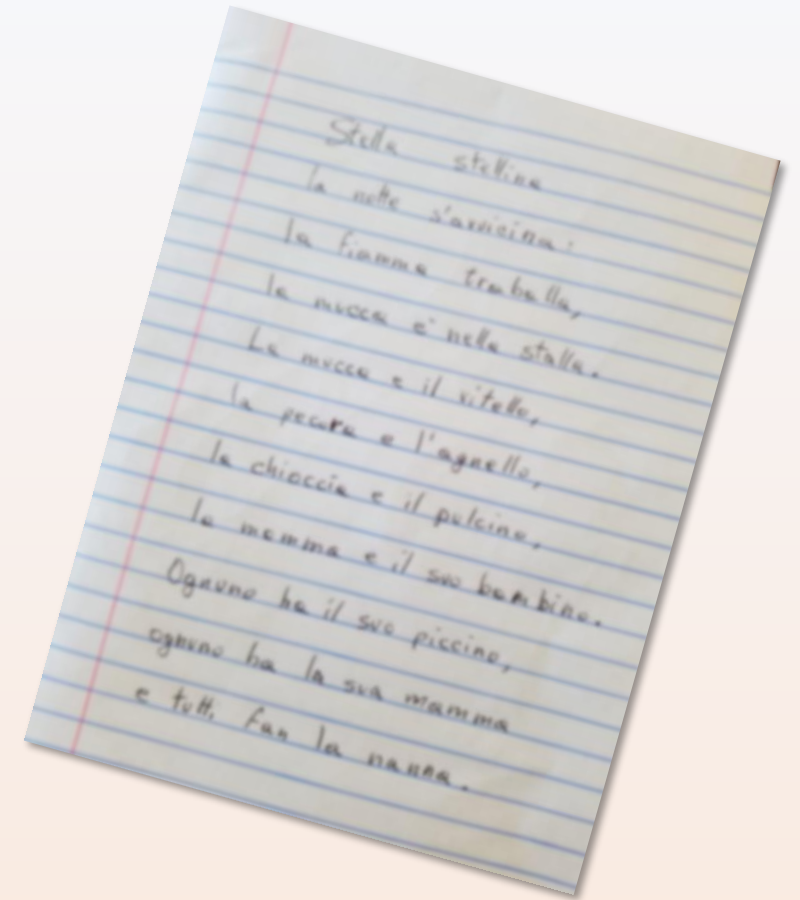 Stella stellina
la notte s'avvicina:
la fiamma traballa,
la mucca e' nella stalla.
La mucca e il vitello,
la pecora e l'agnello,
la chioccia e il pulcino,
la mamma e il suo bambino.
Ognuno ha il suo piccino,
ognuno ha la sua mamma
e tutti fan la nanna.